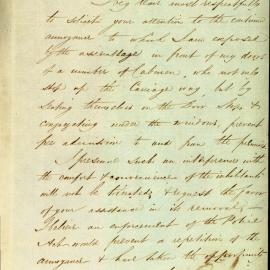 I beg thou most respectfully
to solicit your attention to the continued
annoyance to which I am exposed
by the assemblage in front of my door
of a number of Cabmen, who not only
stop up the Carriage way, but by
seating themselves on the Door Steps &
congregating under the windows, prevent
free admission to and from the premises
I presume such an interference with
the comfort & convenience of the inhabitants
will not be tolerated, & request the favor
of your assistance in its removal,—
I believe an enforcement of the Police
Act would prevent a repetition of the
annoyance & have taken the opportunity